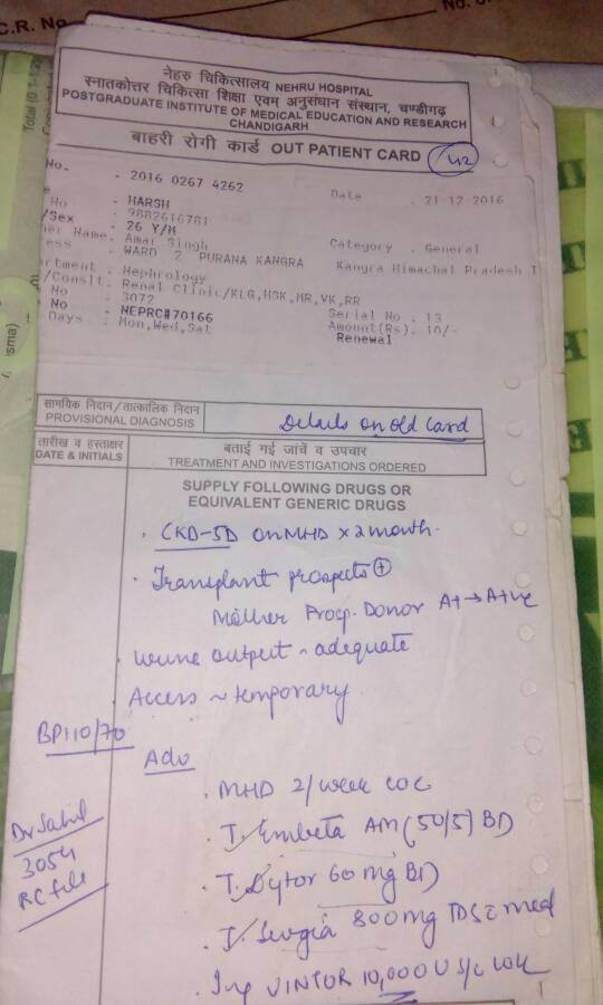 C.R. No.
No.
Total (D 1-1
नेहरु चिकित्सालय NEHRU HOSPITAL
स्नातकोत्तर चिकित्सा शिक्षा एवम अनुसंधान संस्थान, चण्डीगढ़
POSTGRADUATE INSTITUTE OF MEDICAL EDUCATION AND RESEARCH
CHANDIGARH
बाहरी रोगी कार्ड OUT PATIENT CARD
No. - 2016 0267 4262 Date . 21-12-2016
- HARSH
No - 9882616781
/Sex . 26 Y/M
her Name. Amar Singh Category . General
ess . WARD 2 PURANA KANGRA Kangra Himachal Pradesh I
rtment . Nephrology
/Conslt. Renal Clinic/KLG,HSK,MR,VK,RR
No . 3072 Serial No . 13
No . NEPRC#70166 Amount(Rs). 10/-
Days . Mon,Wed,Sat Renewal
sma)
सामयिक निदान/तात्कालिक निदान
PROVISIONAL DIAGNOSIS Details on old Card
तारीख व हस्ताक्षर बताई गई जांचें व उपचार
DATE & INITIALS TREATMENT AND INVESTIGATIONS ORDERED
SUPPLY FOLLOWING DRUGS OR
EQUIVALENT GENERIC DRUGS
. CKD-5D on MHD x 2 month.
. Transplant prospects +
Mother Prosp. Donor A+ → A+ve
. Urine output ~ adequate
Access ~ temporary
BP110/70
Adv
. MHD 2/week
. T. Embeta AM (50/5) BD
Dr Sahil
3054
RC file
. T. Dytor 60 mg BD
. T. 800mg TDS c med
. Inj VINTOR 10,000 U s/c